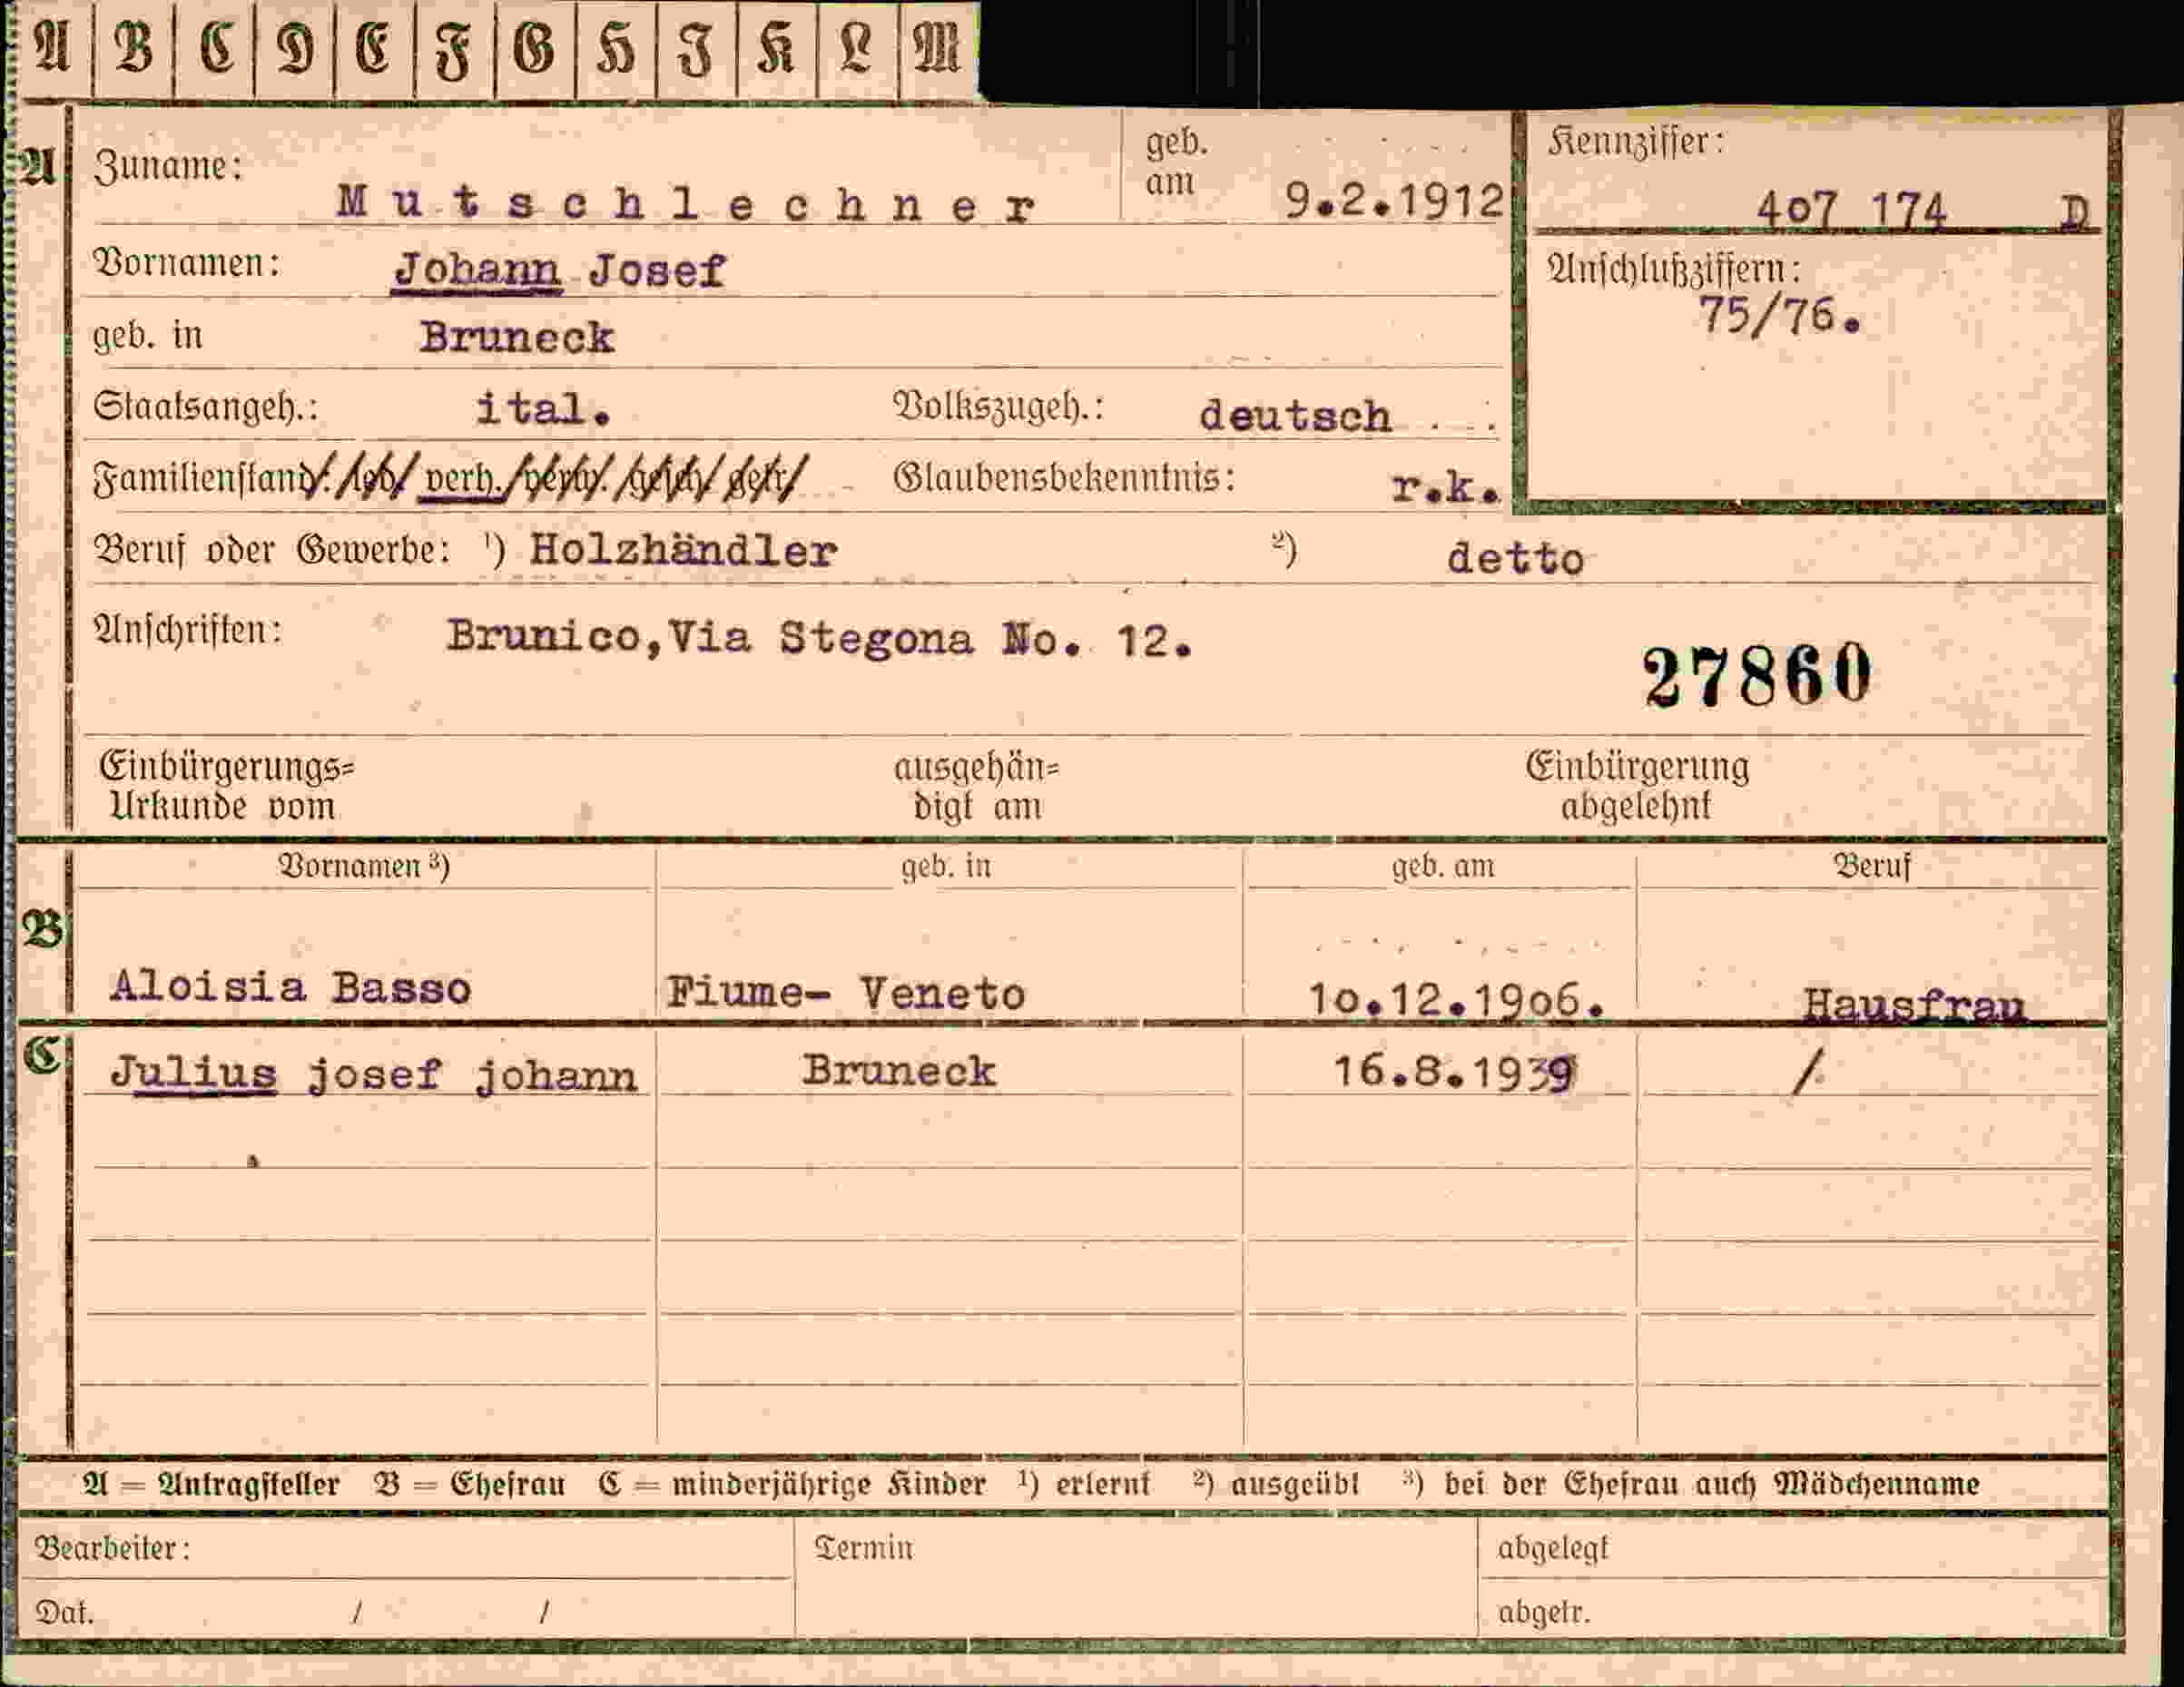 A B C D E F G H J K L M
A Zuname: Mutschlechner geb. am 9.2.1912 Kennziffer: 407 174 D
Vornamen: Johann Josef Anschlußziffern: 75/76.
geb. in Bruneck
Staatsangeh.: ital. Volkszugeh.: deutsch
Familienstand: led. verh. verw. gesch. getr. Glaubensbekenntnis: r.k.
Beruf oder Gewerbe: ¹) Holzhändler ²) detto
Anschriften: Brunico,Via Stegona No. 12.
27860
Einbürgerungs= ausgehän= Einbürgerung
Urkunde vom digt am abgelehnt
B Vornamen ³) geb. in geb. am Beruf
Aloisia Basso Fiume- Veneto 10.12.1906. Hausfrau
C Julius josef johann Bruneck 16.8.1939 /
A = Antragsteller B = Ehefrau C = minderjährige Kinder ¹) erlernt ²) ausgeübt ³) bei der Ehefrau auch Mädchenname
Bearbeiter: Termin abgelegt
Dat. / / abgetr.